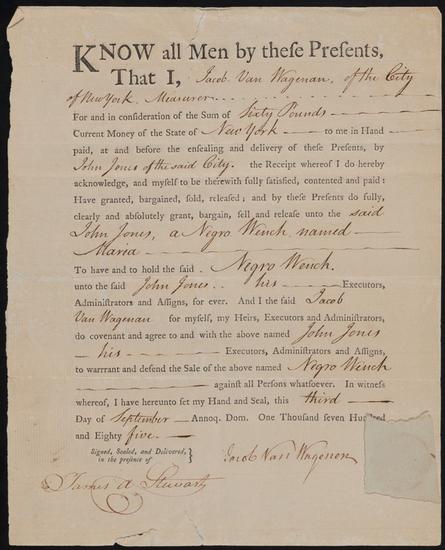 KNOW all Men by theſe Preſents,
That I, Jacob Van Wagenan, of the City
of New York. Measurer
For and in conſideration of the Sum of Sixty Pounds
Current Money of the State of New York to me in Hand
paid, at and before the enſealing and delivery of theſe Preſents, by
John Jones of the said City. the Receipt whereof I do hereby
acknowledge, and myſelf to be therewith fully ſatisfied, contented and paid:
Have granted, bargained, ſold, releaſed; and by theſe Preſents do fully,
clearly and abſolutely grant, bargain, ſell and releaſe unto the said
John Jones, a Negro Wench named
Maria
To have and to hold the ſaid . Negro Wench.
unto the ſaid John Jones.. his Executors,
Adminiſtrators and Aſſigns, for ever. And I the ſaid Jacob
Van Wagenan for myſelf, my Heirs, Executors and Adminiſtrators,
do covenant and agree to and with the above named John Jones
his Executors, Adminiſtrators and Aſſigns,
to warrrant and defend the Sale of the above named Negro Wench
againſt all Perſons whatſoever. In witneſs
whereof, I have hereunto ſet my Hand and Seal, this third
Day of September Annoq. Dom. One Thouſand ſeven Hundred
and Eighty five.
Signed, Sealed, and Delivered,
in the preſence of
Jacob Van Wagenen
James A Stewart